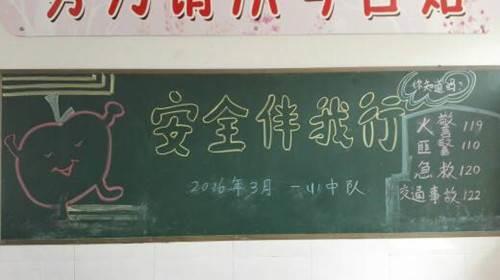 安全伴我行
2016年3月 一(4)中队
你知道吗?
火警119
匪警110
急救120
交通事故122